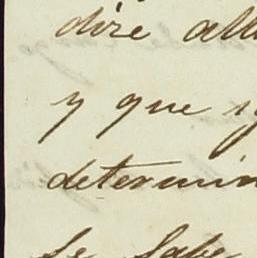 dire all
y que
determin
se sabe